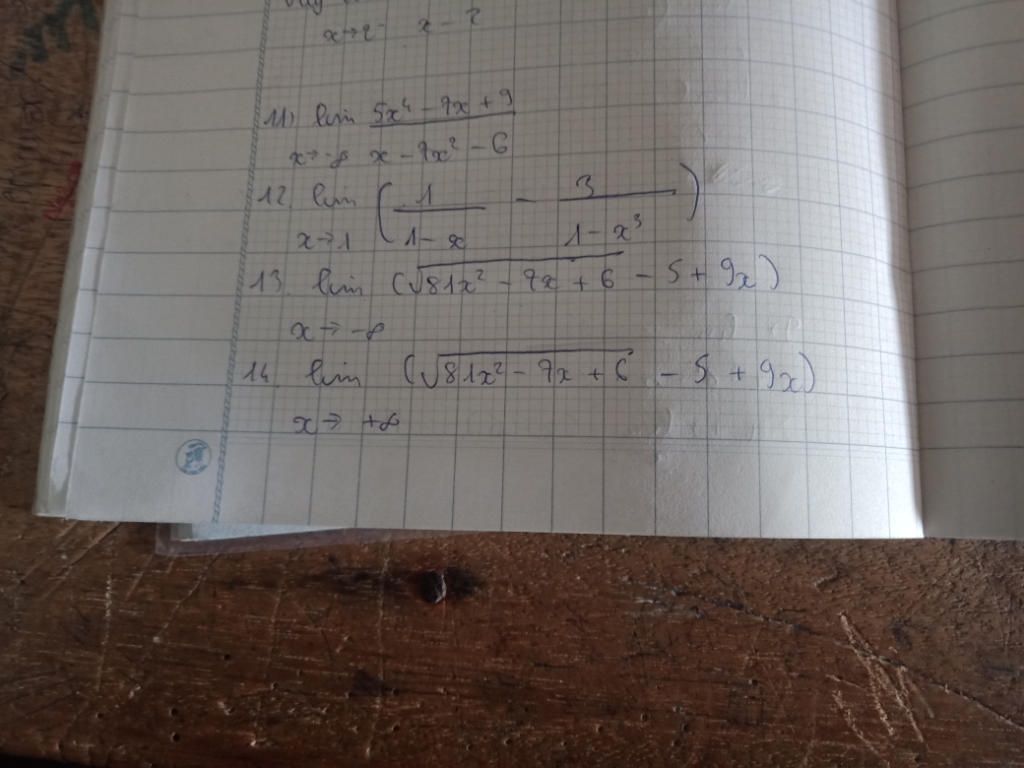 x→2⁻ x - 2
11) lim 5x⁴ - 7x + 9
x→-∞ x - 7x² - 6
12. lim ( 1 - 3 )
x→1 1-x 1-x³
13. lim (√81x² - 7x + 6 - 5 + 9x)
x→ -∞
14. lim (√81x² - 7x + 6 - 5 + 9x)
x→ +∞